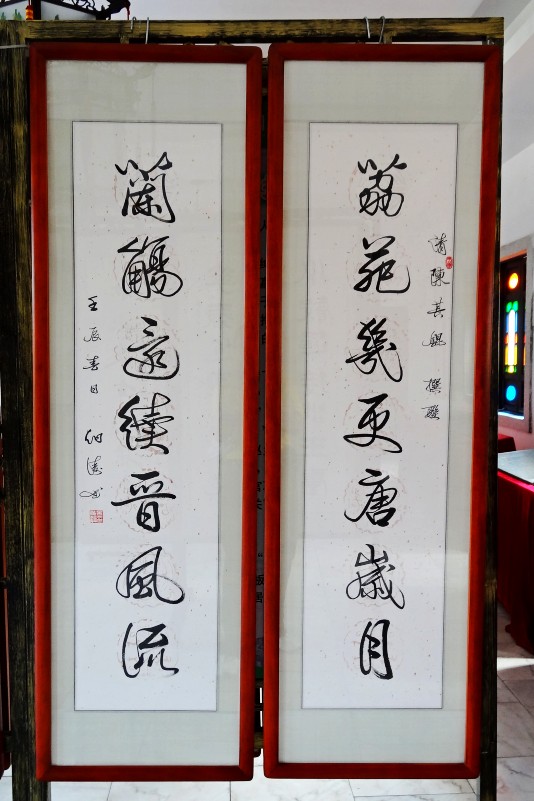 荔苑幾更唐歲月
清陳其錕 撰聯
蘭觴還續晉風流
壬辰春日